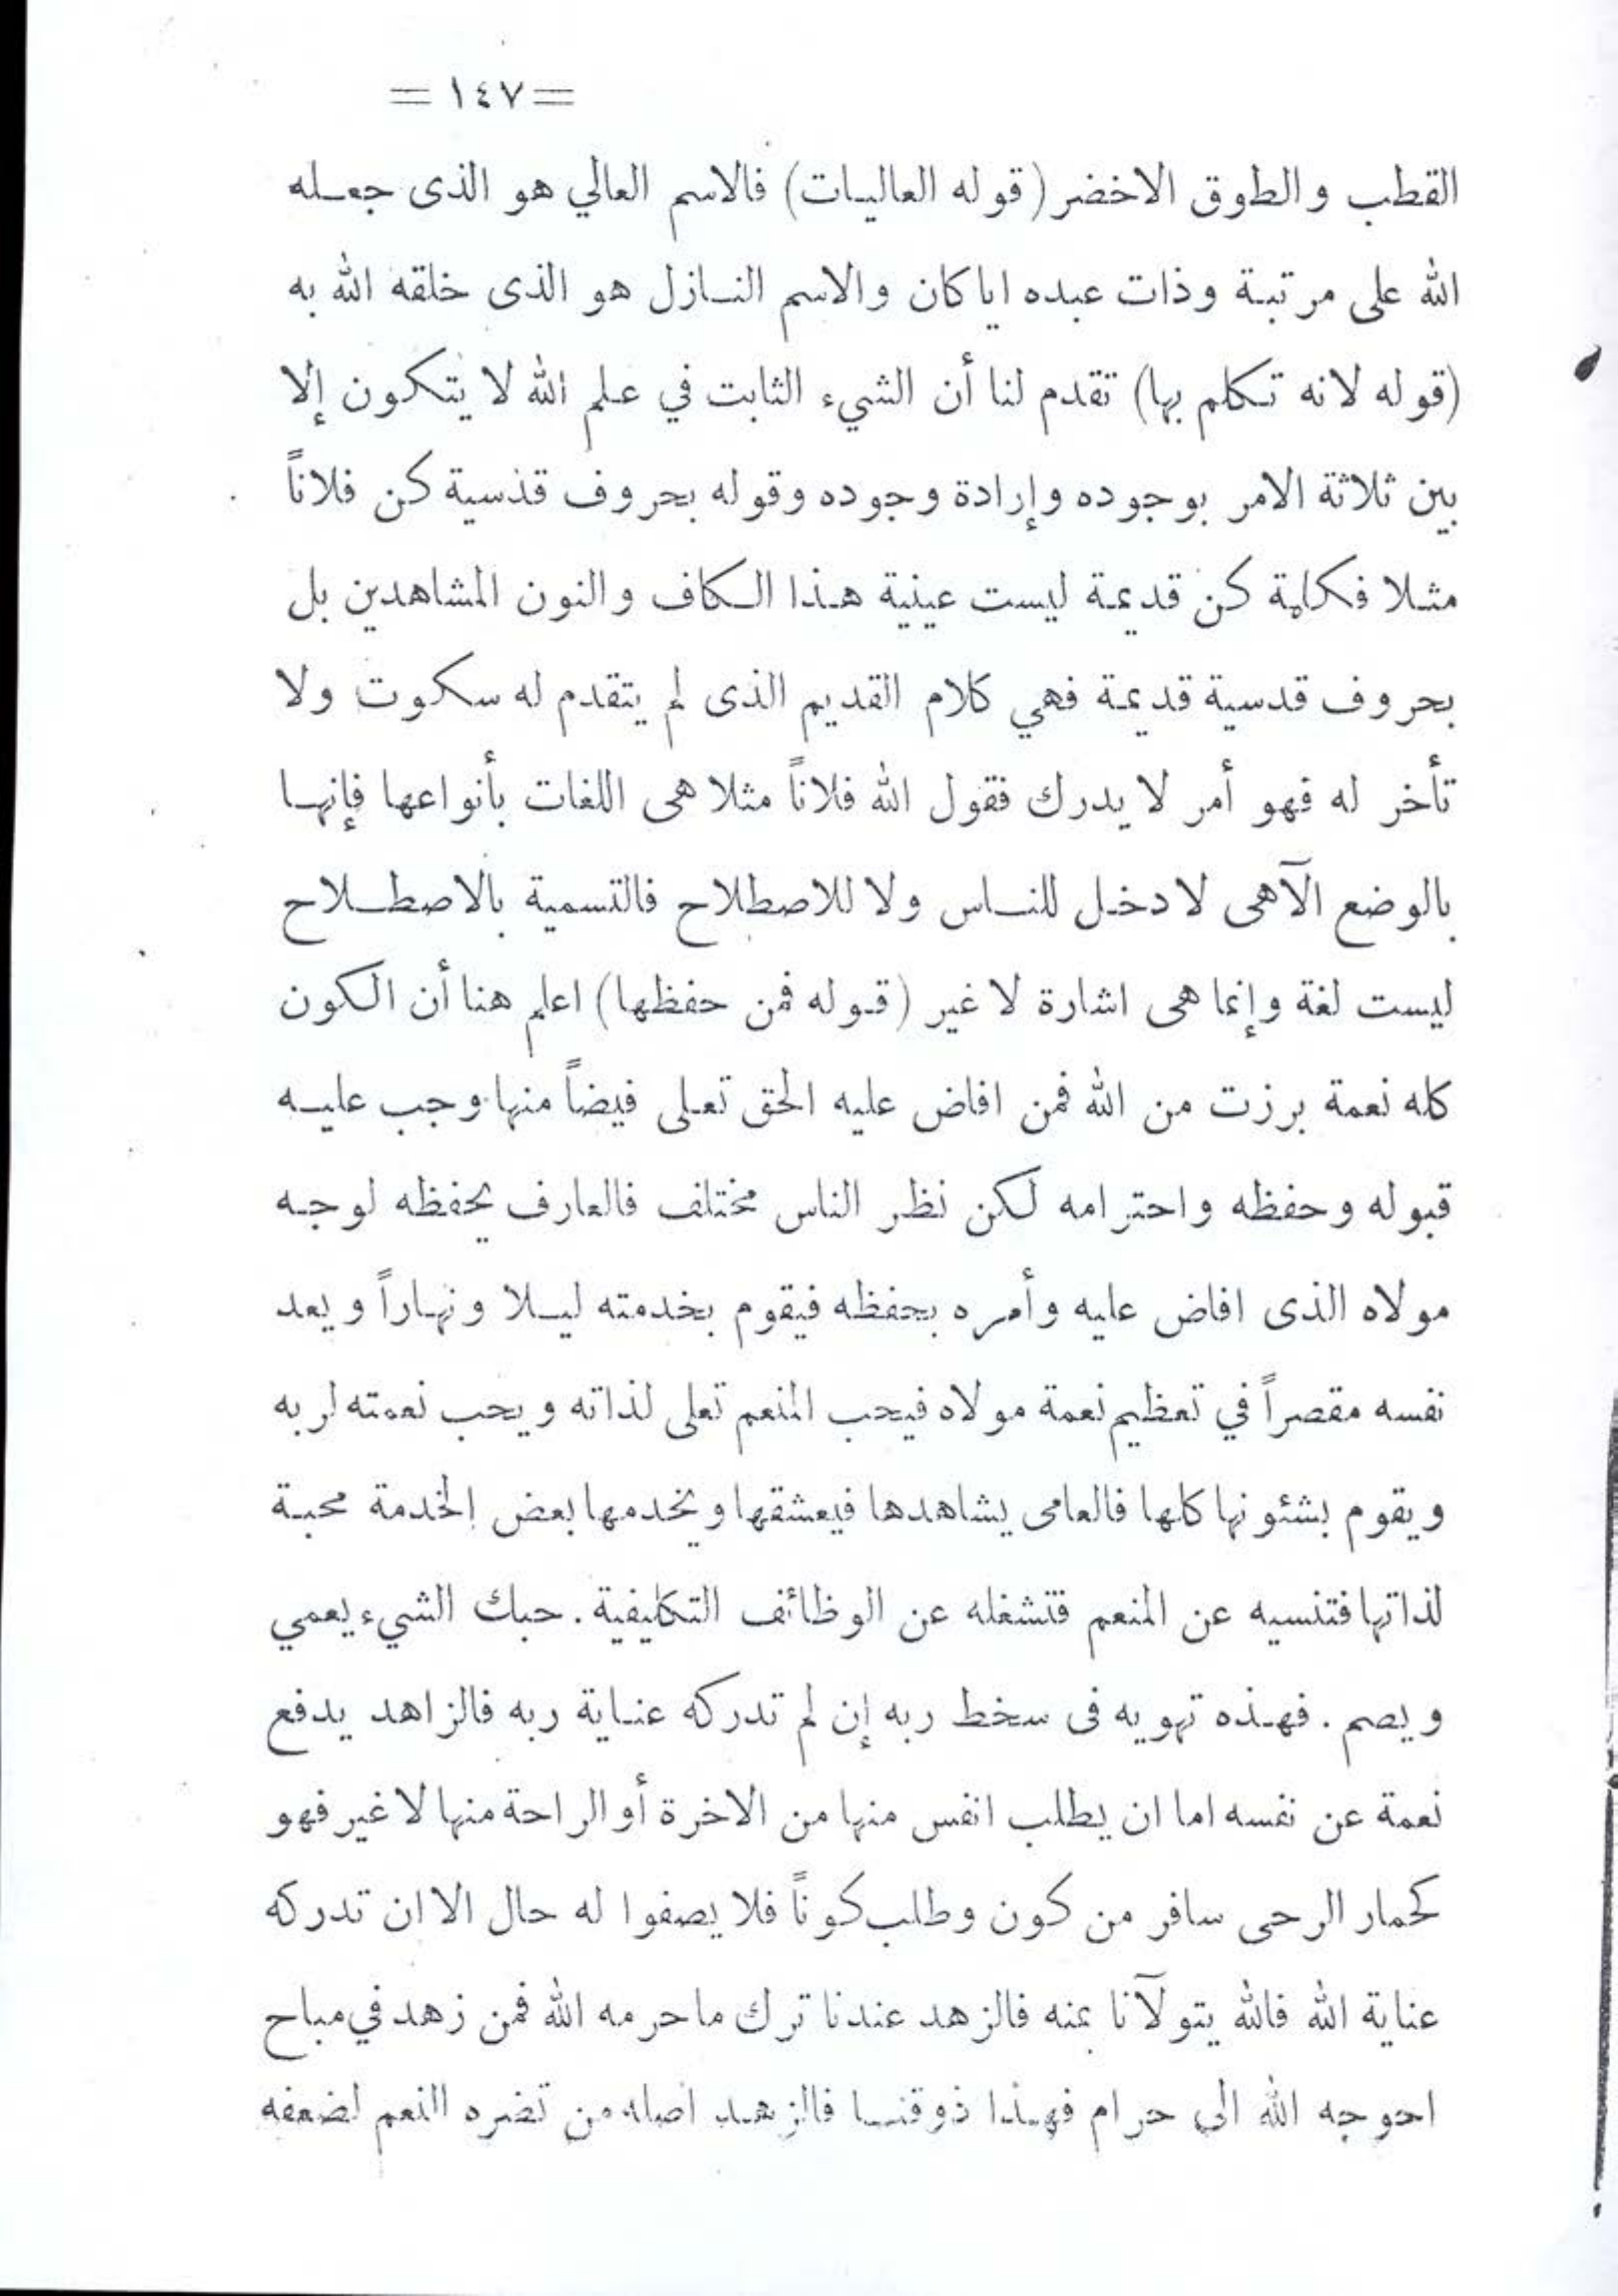 = ١٤٧ =
القطب والطوق الاخضر (قوله العاليات) فالاسم العالي هو الذى جعله
الله على مرتبة وذات عبده ايا كان والاسم النازل هو الذى خلقه الله به
(قوله لانه تكلم بها) تقدم لنا أن الشيء الثابت في علم الله لا يتكون إلا
بين ثلاثة الامر بوجوده وإرادة وجوده وقوله بحروف قدسية كن فلاناً
مثلا فكلمة كن قديمة ليست عينية هذا الكاف والنون المشاهدين بل
بحروف قدسية قديمة فهي كلام القديم الذى لم يتقدم له سكوت ولا
تأخر له فهو أمر لا يدرك فقول الله فلاناً مثلا هى اللغات بأنواعها فإنها
بالوضع الآهى لا دخل للناس ولا للاصطلاح فالتسمية بالاصطلاح
ليست لغة وإنما هى اشارة لا غير (قوله فمن حفظها) اعلم هنا أن الكون
كله نعمة برزت من الله فمن افاض عليه الحق تعلى فيضاً منها وجب عليه
قبوله وحفظه واحترامه لكن نظر الناس مختلف فالعارف يحفظه لوجه
مولاه الذى افاض عليه وأمره بحفظه فيقوم بخدمته ليلا ونهاراً ويعد
نفسه مقصراً في تعظيم نعمة مولاه فيحب المنعم تعلى لذاته ويحب نعمته لربه
ويقوم بشئونها كلها فالعامى يشاهدها فيعشقها ويخدمها بعض الخدمة محبة
لذاتها فتنسيه عن المنعم فتشغله عن الوظائف التكليفية . حبك الشيء يعمي
ويصم . فهذه تهويه فى سخط ربه إن لم تدركه عناية ربه فالزاهد يدفع
نعمة عن نفسه اما ان يطلب انفس منها من الاخرة أو الراحة منها لا غير فهو
كحمار الرحى سافر من كون وطلب كوناً فلا يصفوا له حال الا ان تدركه
عناية الله فالله يتولآنا بمنه فالزهد عندنا ترك ما حرمه الله فمن زهد في مباح
احوجه الله الى حرام فهذا ذوقنا فالزهد اصله من تضره النعم لضعفه